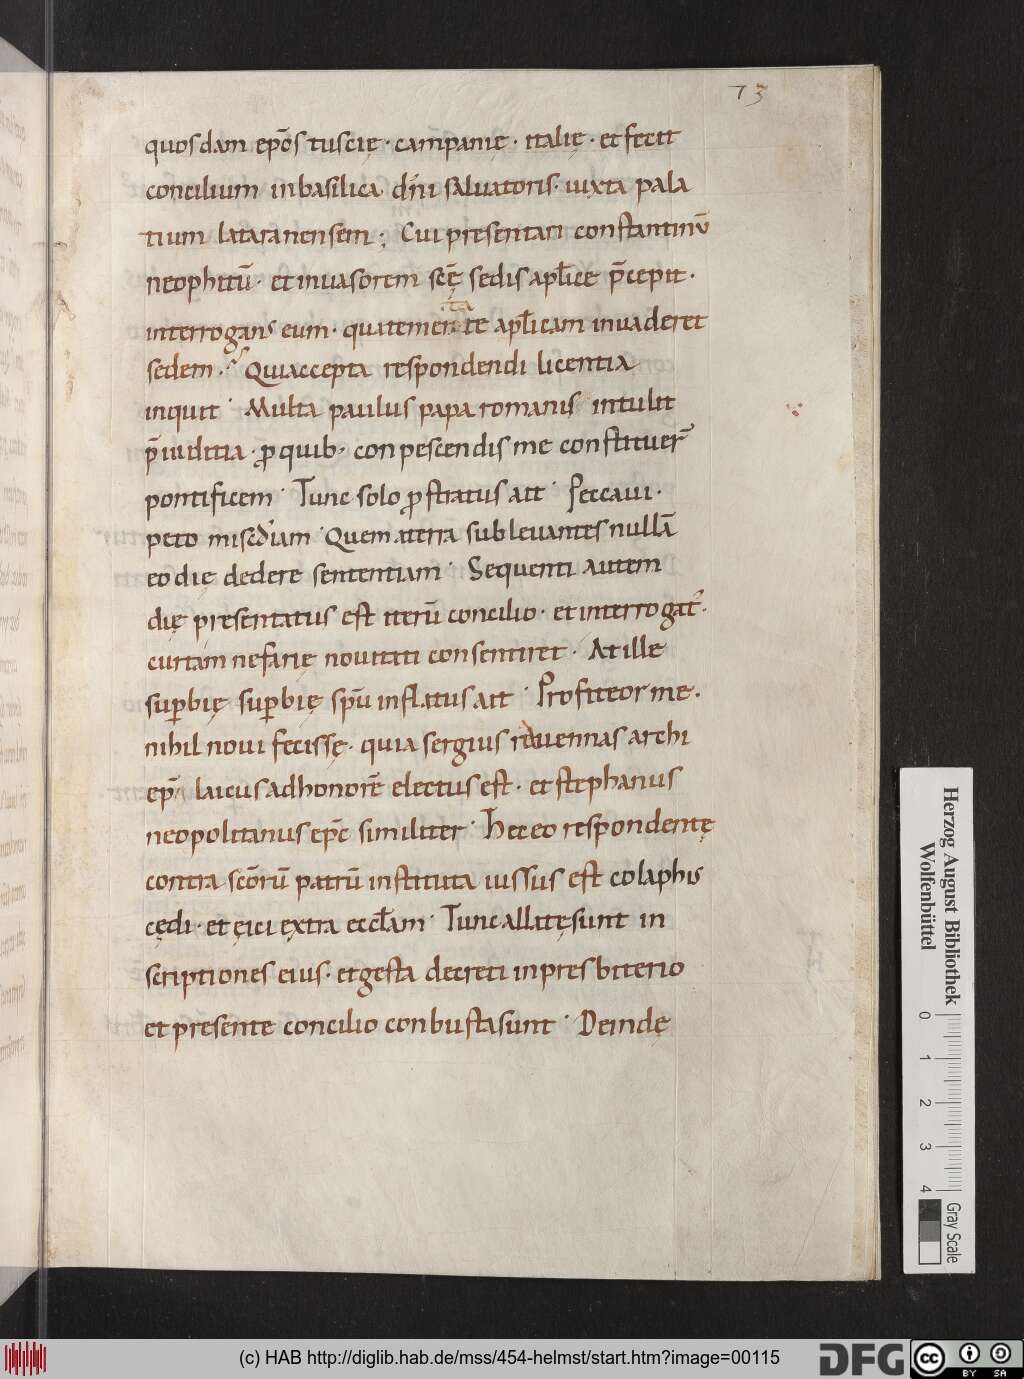 73
quosdam ep̄os tuscię · cam̄panię · italię · et fecit
concilium in basilica dn̄i saluatoris · iuxta pala
tium lataranensem ; Cui presentari constantinū
neophitū · et inuasorem scę̄ sedis apl̄ice p̄cepit ·
ita
interrogans eum · quatemerite apl̄icam inuaderet
sedem · Qui accepta respondendi licentia
inquit · Multa paulus papa romanis intulit
p̄iuditia · ꝓ quib · conpescendis me constituer̄
pontificem · Tunc solo ꝓstratus ait · Peccaui ·
peto misc̄diam · Quem a terra subleuantes nullā
eo die dedere sententiam · Sequenti autem
dię presentatus est iterū concilio · et interrogat̄ ·
cur tam nefarię nouitati consentiret · At ille
suꝑbię suꝑbię sp̄u inflatus ait · Profiteor me ·
nihil noui fecissę · quia sergius rauennas archi
ep̄s laicus ad honorē electus est · et stephanus
neopolitanus ep̄c similiter · Hec eo respondentę
contra sc̄orū patrū instituta iussus est colaphis
cędi · et ęici extra eccl̄am · Tunc allatę sunt in
scriptiones eius · et gesta decreti in presbiterio
et presente concilio conbusta sunt · Deindę
Herzog August Bibliothek
Wolfenbüttel
0 1 2 3 4
Gray Scale
(c) HAB http://diglib.hab.de/mss/454-helmst/start.htm?image=00115
DFG
cc BY SA